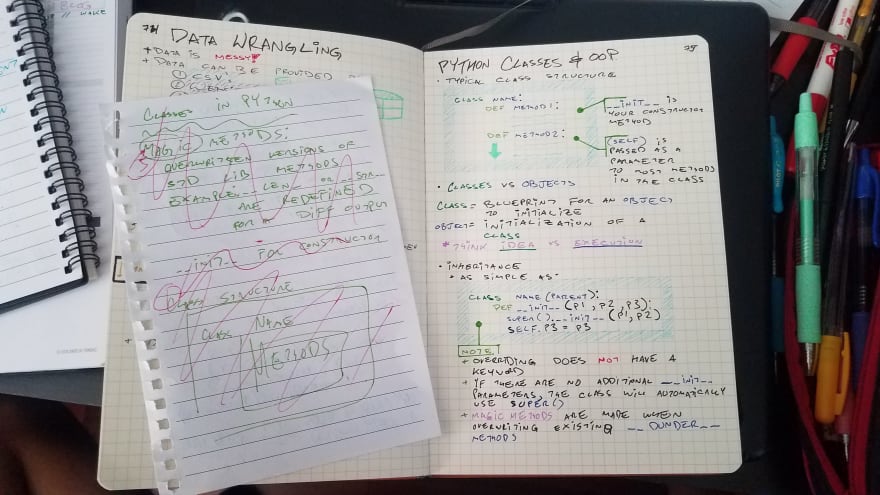 BLOG
// WAKE
74
DATA WRANGLING
+ DATA IS MESSY!
+ DATA CAN BE PROVIDED
① CSV'S
CLASSES IN PYTHON
MAGIC METHODS:
OVERWRITTEN VERSIONS OF
STD LIB METHODS
EXAMPLE: __LEN__ OR __STR__
ARE REDEFINED
FOR A DIFF OUTPUT
__INIT__ FOR CONSTRUCTOR
① CLASS STRUCTURE
CLASS NAME
METHODS
75
PYTHON CLASSES & OOP
• TYPICAL CLASS STRUCTURE
CLASS NAME:
DEF METHOD1:
DEF METHOD2:
__INIT__ IS
YOUR CONSTRUCTOR
METHOD
(SELF) IS
PASSED AS A
PARAMETER
TO MOST METHODS
IN THE CLASS
• CLASSES VS OBJECTS
CLASS = BLUEPRINT FOR AN OBJECT
TO INITIALIZE
OBJECT = INITIALIZATION OF A
CLASS
* THINK IDEA VS EXECUTION
• INHERITANCE
• AS SIMPLE AS:
CLASS NAME (PARENT):
DEF __INIT__ (P1, P2, P3):
SUPER().__INIT__ (P1, P2)
SELF.P3 = P3
NOTE
+ OVERRIDING DOES NOT HAVE A
KEYWORD
+ IF THERE ARE NO ADDITIONAL __INIT__
PARAMETERS, THE CLASS WILL AUTOMATICALLY
USE SUPER()
+ MAGIC METHODS ARE MADE WHEN
OVERWRITING EXISTING __DUNDER__
METHODS